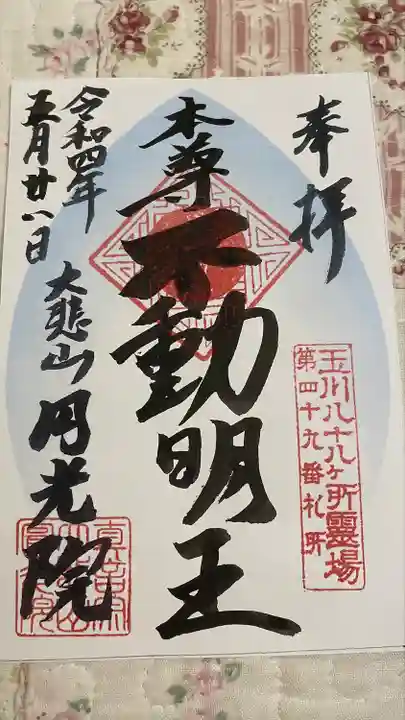 奉拝
玉川八十八ヶ所霊場
第四十九番札所
本尊
不動明王
令和四年
五月廿八日
大悲山
円光院